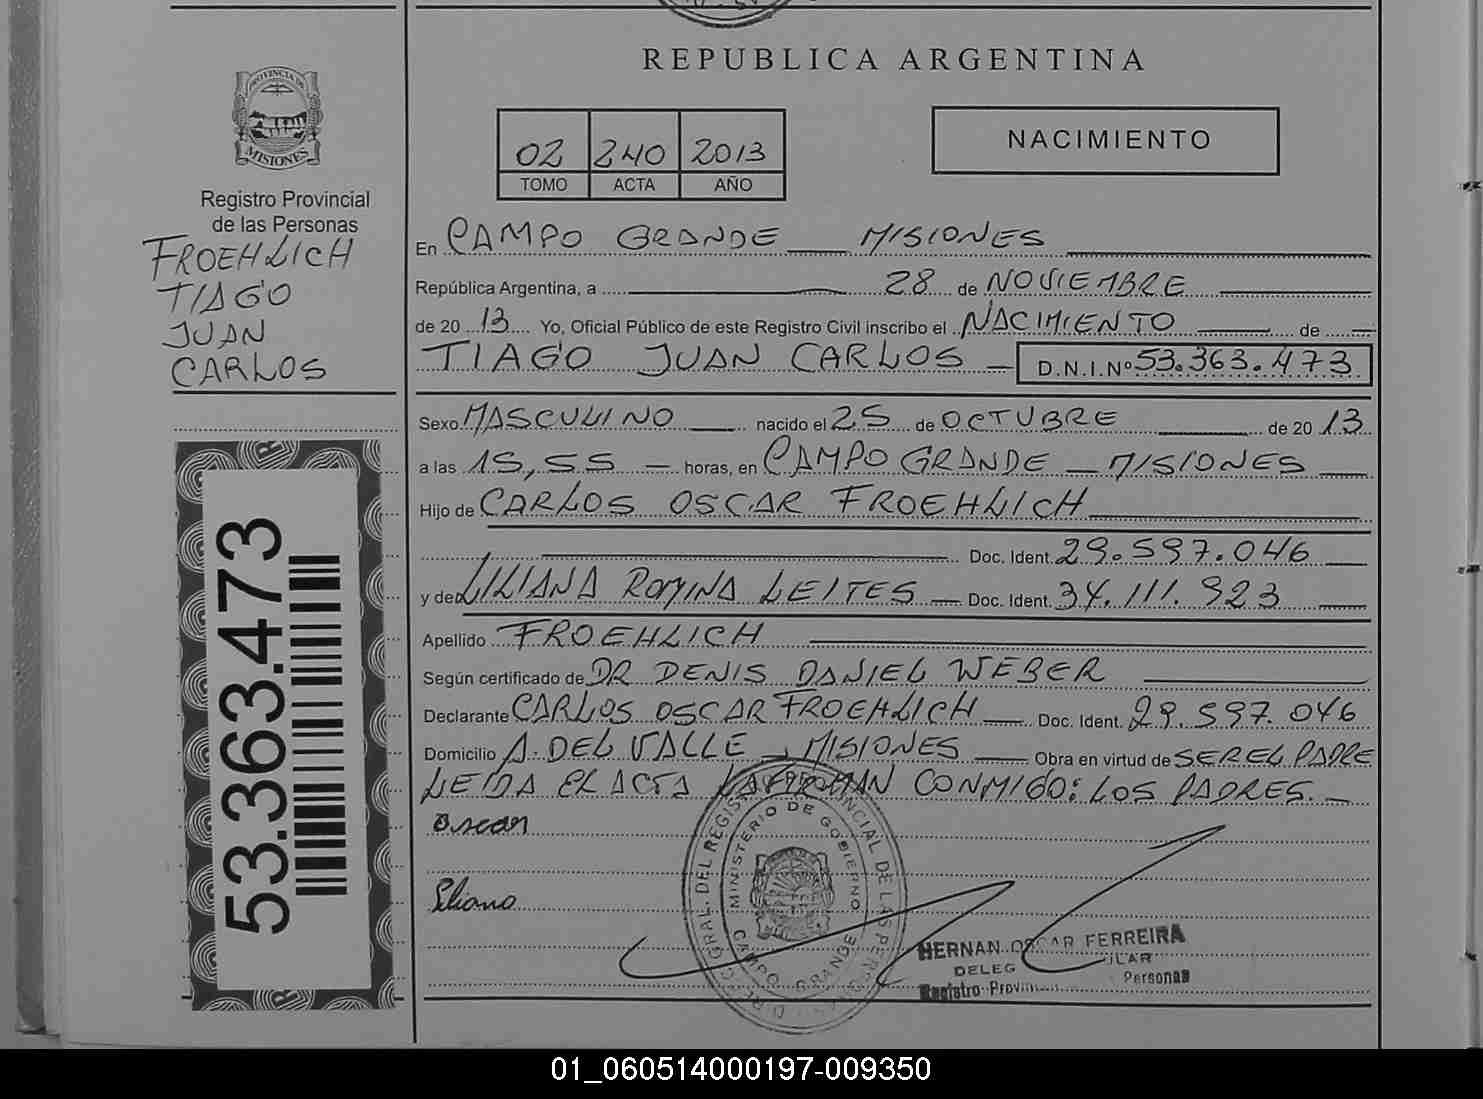 REPUBLICA ARGENTINA
PROVINCIA DE
MISIONES
Registro Provincial
de las Personas
FROEHLICH
TIAGO
JUAN
CARLOS
53.363.473
02 240 2013
TOMO ACTA AÑO
NACIMIENTO
En CAMPO GRANDE MISIONES
República Argentina, a 28 de NOVIEMBRE
de 20 13 Yo, Oficial Público de este Registro Civil inscribo el NACIMIENTO de
TIAGO JUAN CARLOS D.N.I.Nº 53.363.473
Sexo MASCULINO nacido el 25 de OCTUBRE de 20 13
a las 15,55 horas, en CAMPO GRANDE - MISIONES
Hijo de CARLOS OSCAR FROEHLICH
Doc. Ident. 29.597.046
y de LILIANA ROMINA LEITES Doc. Ident. 34.111.923
Apellido FROEHLICH
Según certificado de DR DENIS DANIEL WEBER
Declarante CARLOS OSCAR FROEHLICH Doc. Ident. 29.597.046
Domicilio A. DEL VALLE - MISIONES Obra en virtud de SER EL PADRE
LEIDA EL ACTA LA FIRMAN CONMIGO: LOS PADRES.
Oscar
Liliana
DIREC. GRAL. DEL REGISTRO PROVINCIAL DE LAS PERSONAS
MINISTERIO DE GOBIERNO
CAMPO GRANDE
HERNAN OSCAR FERREIRA
DELEG
Registro Provin Personas
01_060514000197-009350